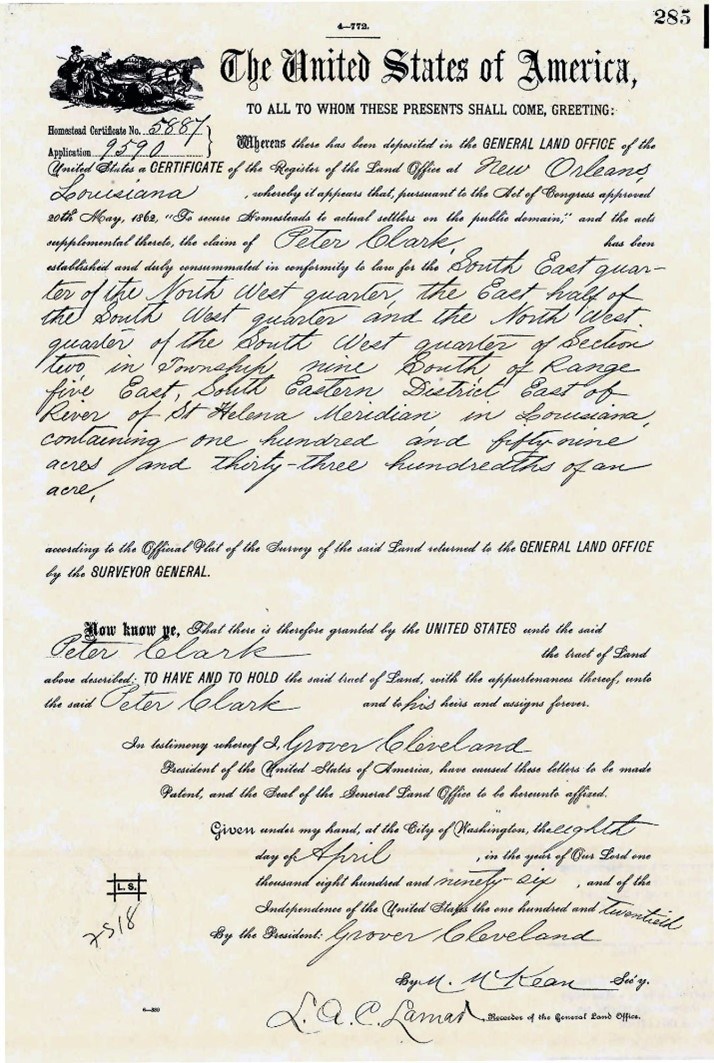 285
4—772.
The United States of America,
TO ALL TO WHOM THESE PRESENTS SHALL COME, GREETING:
Homestead Certificate No. 5887
Application 9590
Whereas there has been deposited in the GENERAL LAND OFFICE of the
United States a CERTIFICATE of the Register of the Land Office at New Orleans,
Louisiana, whereby it appears that, pursuant to the Act of Congress approved
20th May, 1862, "To secure Homesteads to actual settlers on the public domain," and the acts
supplemental thereto, the claim of Peter Clark, has been
established and duly consummated in conformity to law for the South East quar-
ter of the North West quarter, the East half of
the South West quarter and the North West
quarter of the South West quarter of Section
two in Township nine South of Range
five East, South Eastern District East of
River of St Helena Meridian in Louisiana,
containing one hundred and fifty-nine
acres and thirty-three hundredths of an
acre,
according to the Official Plat of the Survey of the said Land returned to the GENERAL LAND OFFICE
by the SURVEYOR GENERAL.
Now know ye, That there is therefore granted by the UNITED STATES unto the said
Peter Clark the tract of Land
above described: TO HAVE AND TO HOLD the said tract of Land, with the appurtenances thereof, unto
the said Peter Clark and to his heirs and assigns forever.
In testimony whereof I, Grover Cleveland
President of the United States of America, have caused these letters to be made
Patent, and the Seal of the General Land Office to be hereunto affixed.
Given under my hand, at the City of Washington, the eighth
day of April, in the year of Our Lord one
thousand eight hundred and ninety-six, and of the
Independence of the United States the one hundred and twentieth
By the President: Grover Cleveland
L. S.
2518
By M. McKean Sec'y.
6—380
L. Q. C. Lamar, Recorder of the General Land Office.